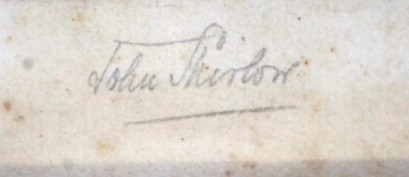 John Shirlow